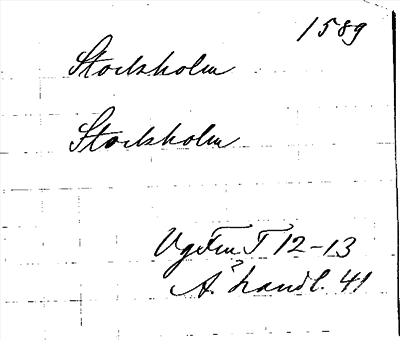 1589
Stockholm
Stockholm
UgFm T 12-13
A. handl. 41